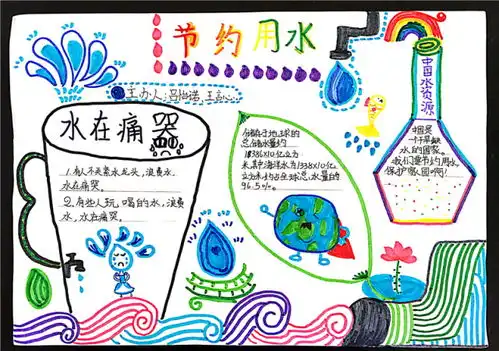 节约用水
主办人:吕怡诺、王言心
水在痛哭
1.有人不关紧水龙头,浪费水,
水在痛哭。
2.有些人玩,喝的水,浪费
水,水在痛哭。
储存于地球的
总储水量约
1386X10亿立方
米,其中海洋水为1338X10亿
立方米,约占全球总水量的
96.5%。
中国水资源
中国是
一个干旱缺
水的国家。
我们要节约用水,
保护家园啊!